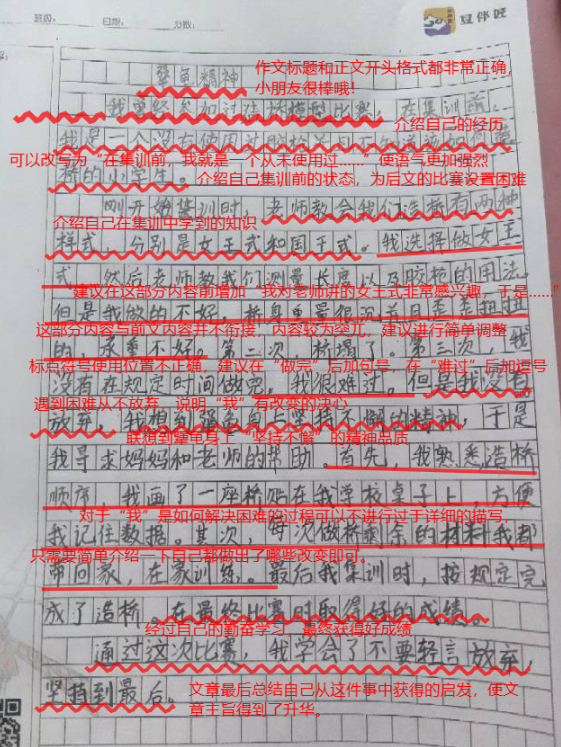 班级: 日期: 分数:
豆伴匠
犟龟精神
作文标题和正文开头格式都非常正确,
小朋友很棒哦!
我曾经参加过造桥模型比赛,在集训前,
介绍自己的经历
我是一个没有使用过
可以改写为“在集训前,我就是一个从未使用过……”使语气更加强烈
桥的小学生。
介绍自己集训前的状态,为后文的比赛设置困难
刚开始集训时,老师教会我们造桥有两种
介绍自己在集训中学到的知识
样式,分别是女王式和国王式。我选择做女王
式,然后老师教我们测量长度以及胶枪的用法。
“建议在这部分内容前增加“我对老师讲的女王式非常感兴趣,于是……”
但是我做的不好,桥身重量很沉并且歪歪扭扭
这部分内容与前文内容并不衔接,内容较为突兀,建议进行简单调整
的,承重不好。第二次,桥塌了。第三次,我
标点符号使用位置不正确,建议在“做完”后加句号,在“难过”后加逗号
没有在规定时间做完,我很难过。但是我没有
遇到困难从不放弃,说明“我”有改变的决心
放弃,我想到犟龟身上坚持不懈的精神,于是
联想到犟龟身上“坚持不懈”的精神品质
我寻求妈妈和老师的帮助。首先,我熟悉造桥
顺序,我画了一座桥贴在我学校桌子上,方便
对于“我”是如何解决困难的过程可以不进行过于详细的描写,
我记住数据。其次,每次做桥剩余的材料我都
只需要简单介绍一下自己都做出了哪些改变即可。
带回家,在家训练。最后我集训时,按规定完
成了造桥。在最终比赛时取得好的成绩。
经过自己的勤奋学习,最终获得好成绩
通过这次比赛,我学会了不要轻言放弃,
坚持到最后。
文章最后总结自己从这件事中获得的启发,使文
章主旨得到了升华。